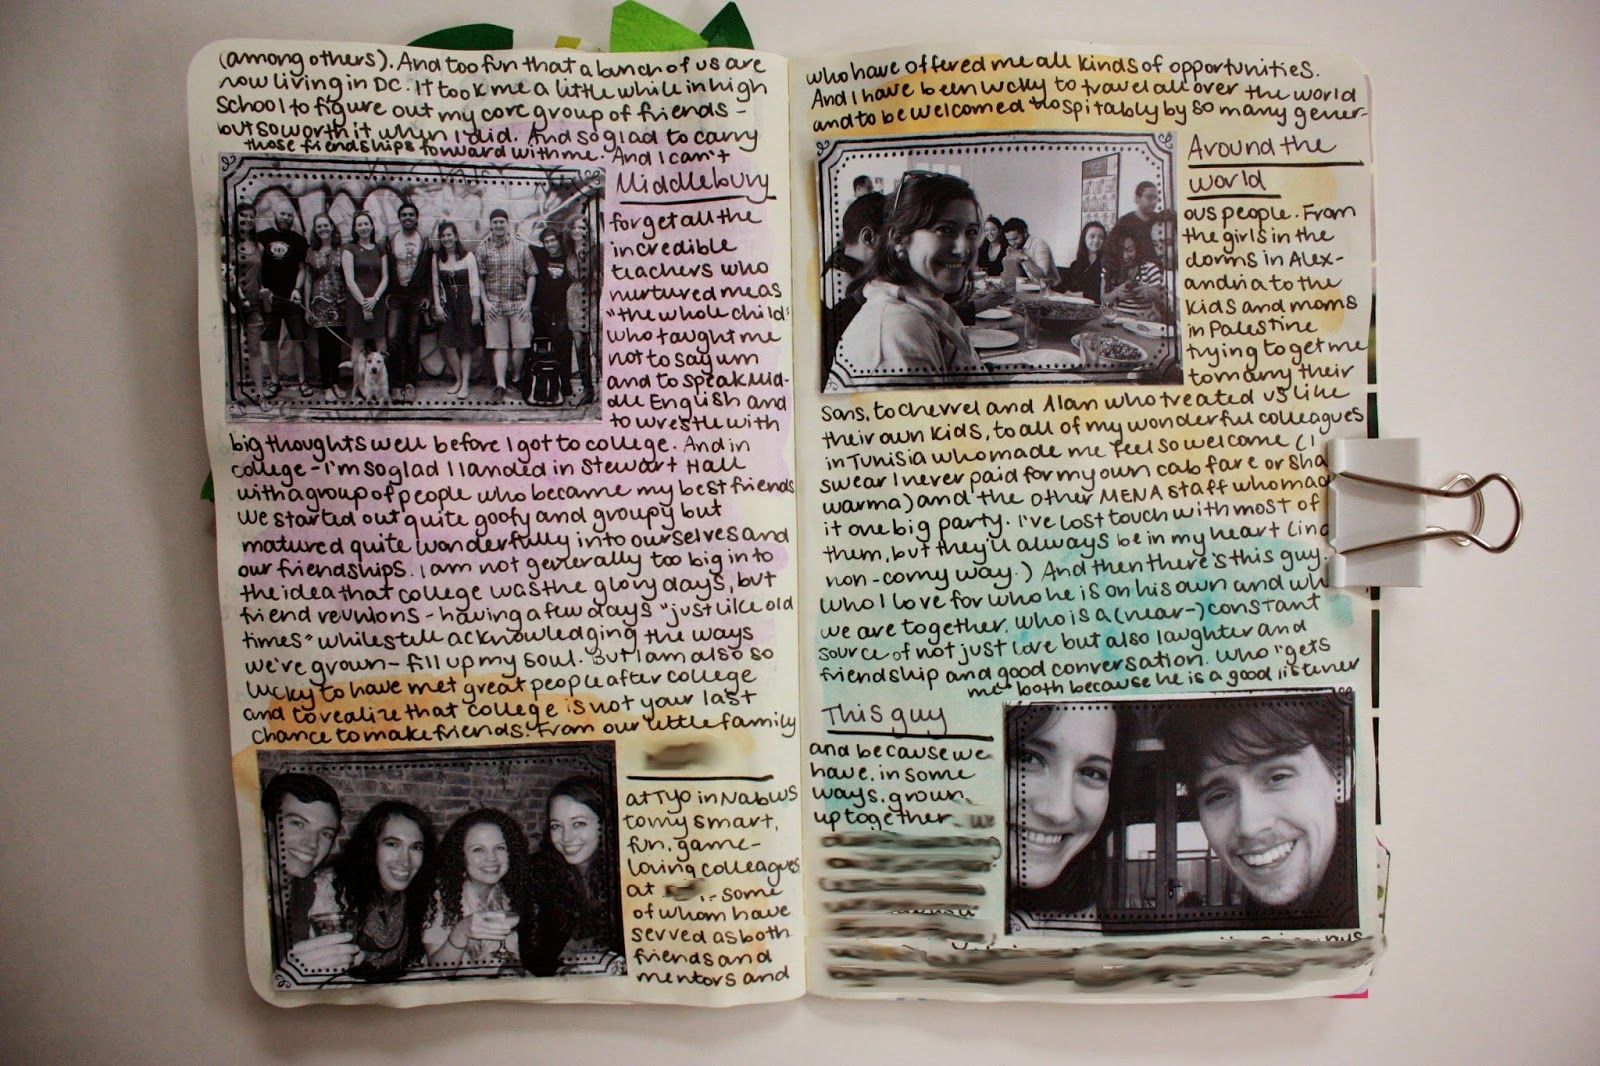 (among others). And too fun that a bunch of us are
now living in DC. It took me a little while in high
school to figure out my core group of friends -
but so worth it when I did. And so glad to carry
those friendships forward with me. And I can't
Middlebury
forget all the
incredible
teachers who
nurtured me as
"the whole child"
who taught me
not to say um
and to speak Mid-
dle English and
to wrestle with
big thoughts well before I got to college. And in
college - I'm so glad I landed in Stewart Hall
with a group of people who became my best friends
We started out quite goofy and groupy but
matured quite wonderfully into ourselves and
our friendships. I am not generally too big in to
the idea that college was the glory days, but
friend reunions - having a few days "just like old
times" while still acknowledging the ways
we've grown - fill up my soul. But I am also so
lucky to have met great people after college
and to realize that college is not your last
chance to make friends. From our little family
at TYO in Nablus
to my smart,
fun, game-
loving colleagues
at - some
of whom have
served as both
friends and
mentors and
who have offered me all kinds of opportunities.
And I have been lucky to travel all over the world
and to be welcomed hospitably by so many gener-
Around the
world
ous people. From
the girls in the
dorms in Alex-
andria to the
kids and moms
in Palestine
trying to get me
to marry their
sons, to Cherrel and Alan who treated us like
their own kids, to all of my wonderful colleagues
in Tunisia who made me feel so welcome (I
swear I never paid for my own cab fare or sha
warma) and the other MENA staff who mad
it one big party. I've lost touch with most of
them, but they'll always be in my heart (in a
non-corny way.) And then there's this guy.
Who I love for who he is on his own and wh
we are together. Who is a (near-) constant
source of not just love but also laughter and
friendship and good conversation. Who "gets
me" both because he is a good listener
This guy
and because we
have, in some
ways, grown
up together.